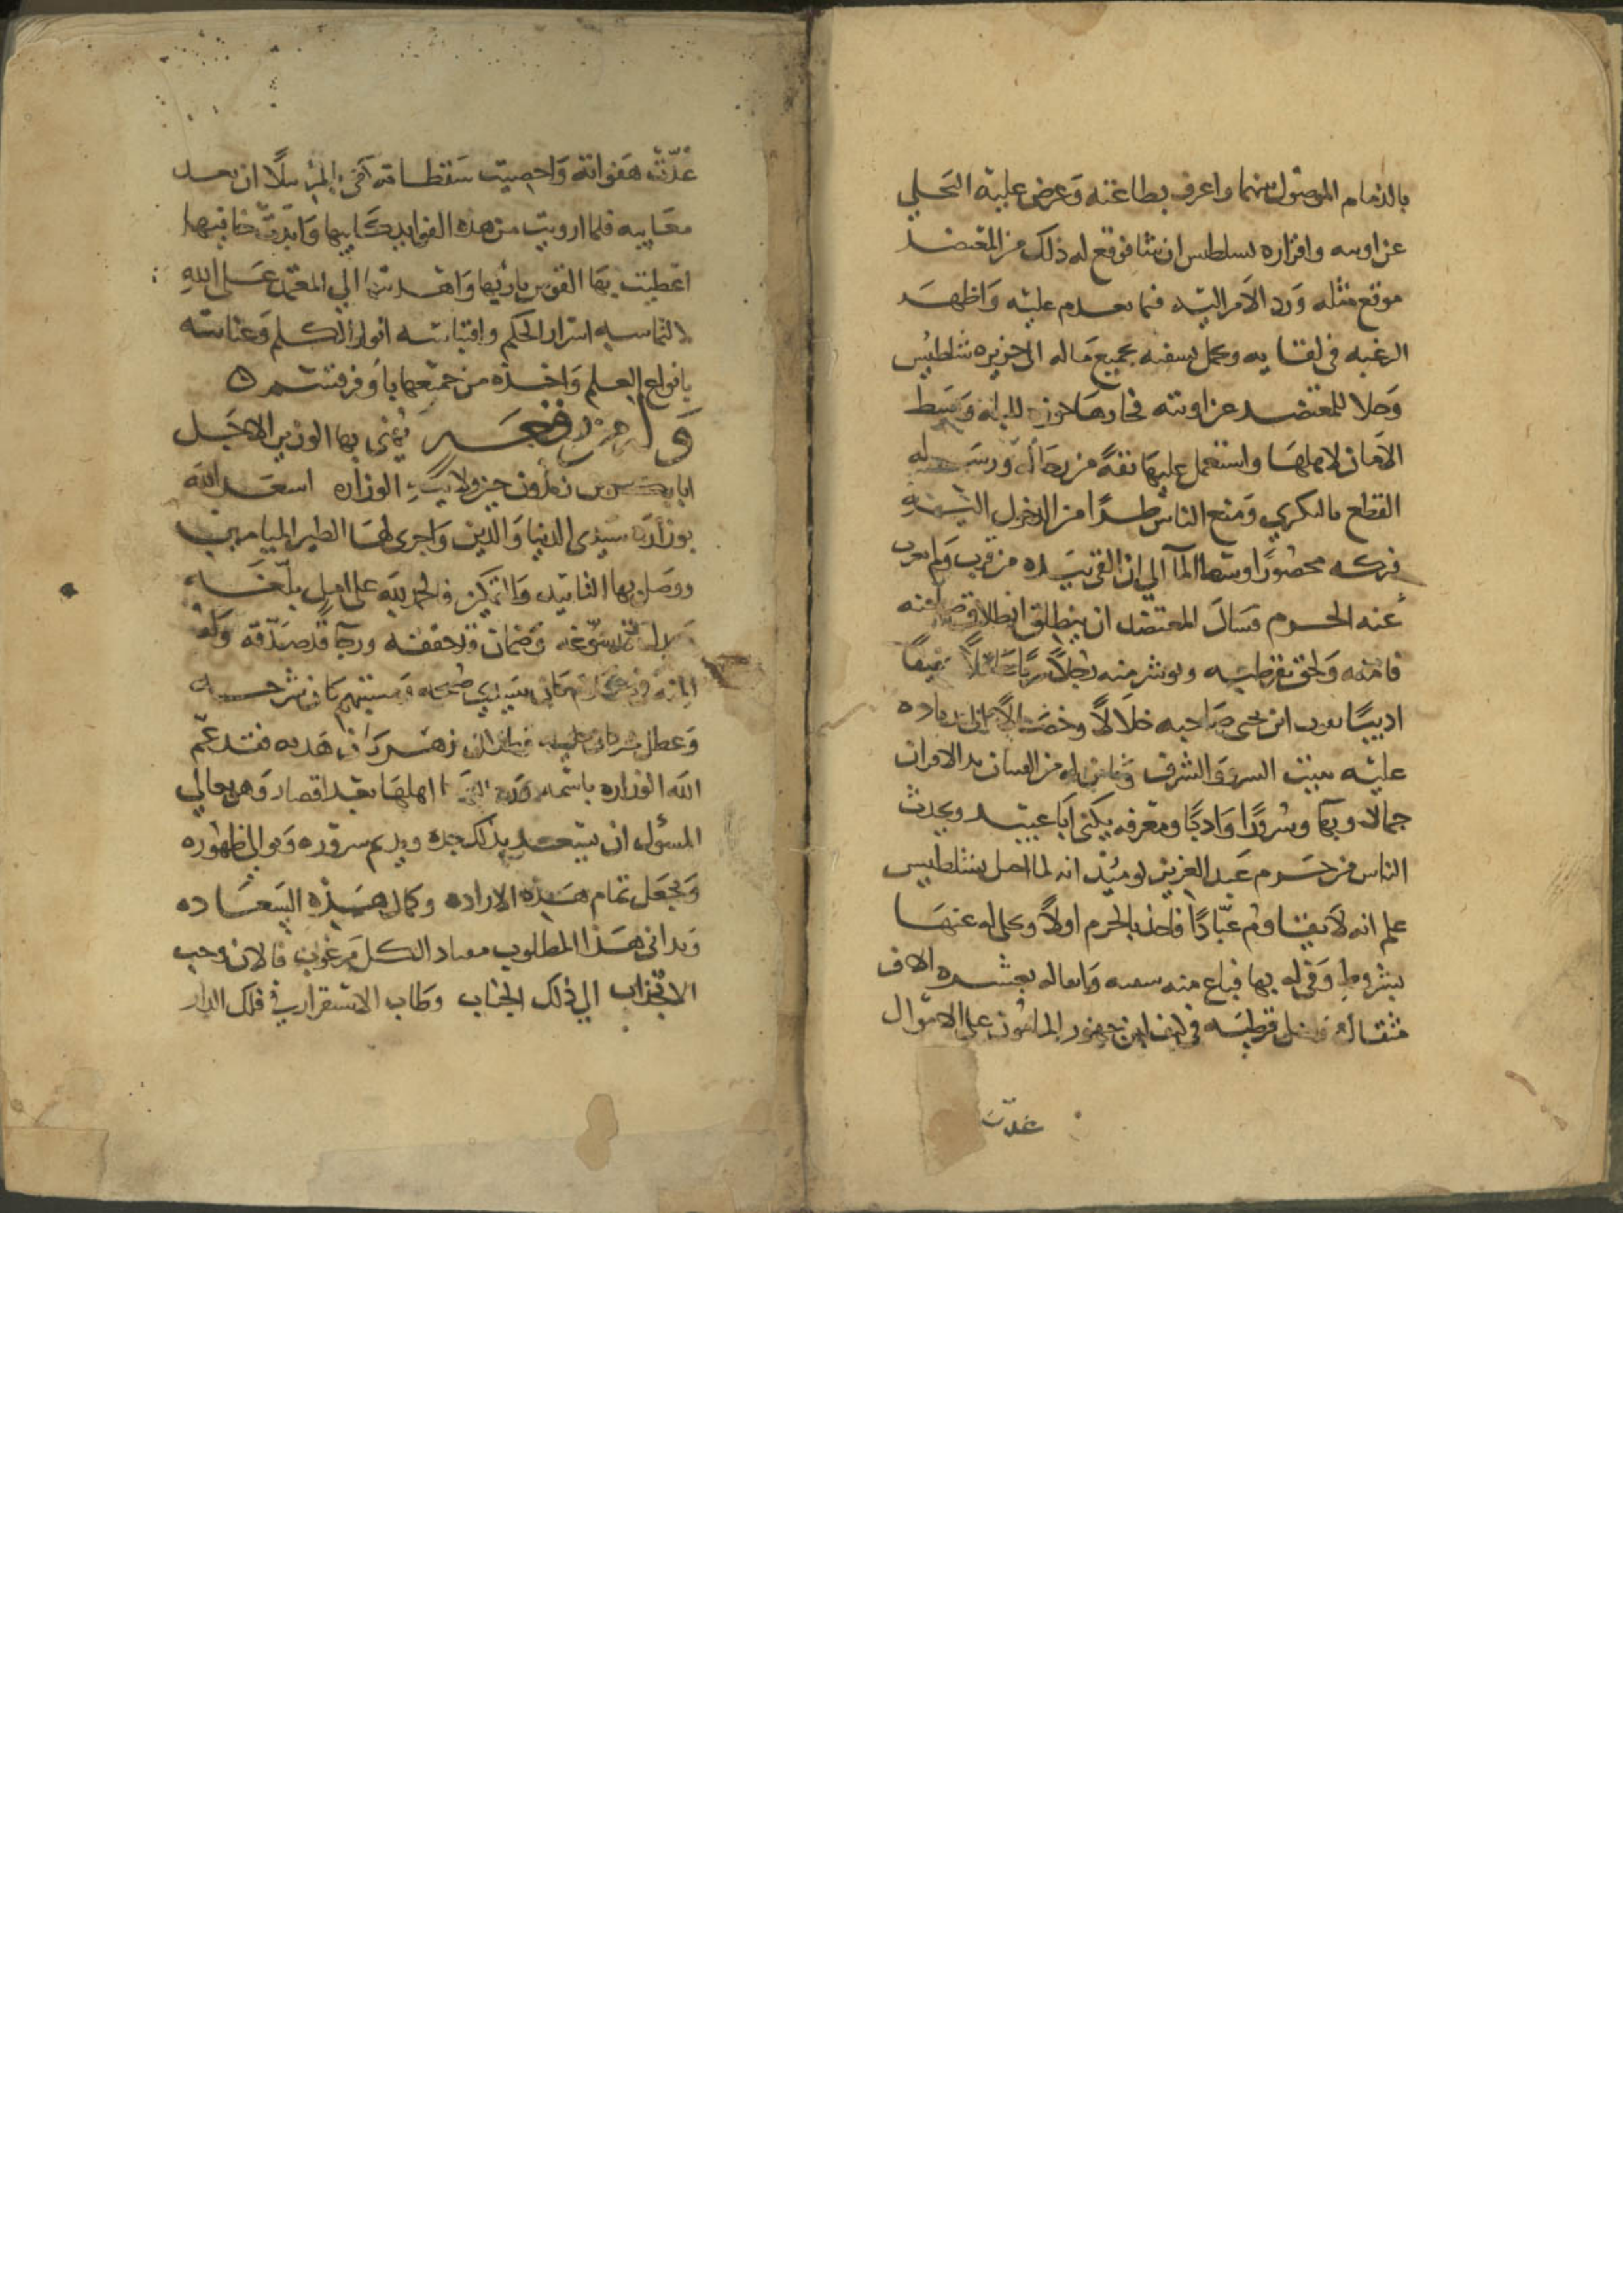 بالذمام الموصول بينهما واعرف بطاعته وعرض عليه التخلي
عن اونبه واقراره بسلطيس ان شا فوقع له ذلك من المعتضد
موقع مثله ورد الامر اليه فيما يعدم عليه واظهر
الرغبه في لقايه وتحمل بسفنه بجميع ماله الى جزيره شلطيش
وخلا للمعتضد عن اونبه فحازها وبسط
الامان لاهلها واستعمل عليها ثقة من رجاله ورسم له
القطع بالبكري ومنع الناس طرا من الدخول اليه
فتركه محصورا وسط الما الى ان القى بيده من قرب ولم يغرب
عنه الحزم فسأل المعتضد ان ينطلق انطلاق صاحبه
فامنه ولحق بقرطبه وبوشر منه رجلا سريا عاقلا عفيفا
اديبا يفوت ابن يحيى صاحبه خلالا وخصالا الى زياده
عليه ببيت السرو والشرف وبابن له من الفتيان بذ الاقران
جمالا وبها وسروا وادبا ومعرفه يكنى ابا عبيد وتحدث
الناس من حزم عبد العزيز يوميذ انه لما احتل بشلطيس
علم انه لا يقاوم عبادا فاخذ بالحزم اولا وتخلى له عنها
بشروط وفى له بها فباع منه سفنه واثقاله بعشره الاف
مثقال قرطبه في كنف ابن جهور المامون على الاموال
عدت
عدت هفواته واحصيت سقطاته كفى بالمرء نبلا ان تعد
معايبه فلما ارويت من هذه الفوايد ركايبها وابديت خافيها
اعطيت بها القوس باريها واهديتها الى المعتمد على الله
لالتماسه اسرار الحكم واقتباسه انوار الكلم وعنايته
بانواع العلم واخذه من جميعها باوفر قسم ه
وله من رقعه يهنى بها الوزير الاجل
ابا بن زيدون حين ولايته الوزاره اسعد الله
بوزاره سيدي الدنيا والدين واجرى لها الطير الميامين
ووصل بها التاييد والتمكين والحمد لله على امل بلغه
قد سوغه وضمان قد حققه ورجا قد صدقه وله
المنة سيدي صبحه ومستبهم كان شرحه
وعطل هديه فقد عم
الله الوزاره باسمه ورد اليها اهلها بعد اقصار وهو تعالى
المسؤل ان يسعد بذلك جده ويديم سروره ويوالي ظهوره
ويجعل تمام هذه الاراده وكمال هذه السعاده
وبدا في هذا المطلوب معاد الكل مرغوب فالان وجب
الانجذاب الى ذلك الجناب وطاب الاستقرار في فلك الدار